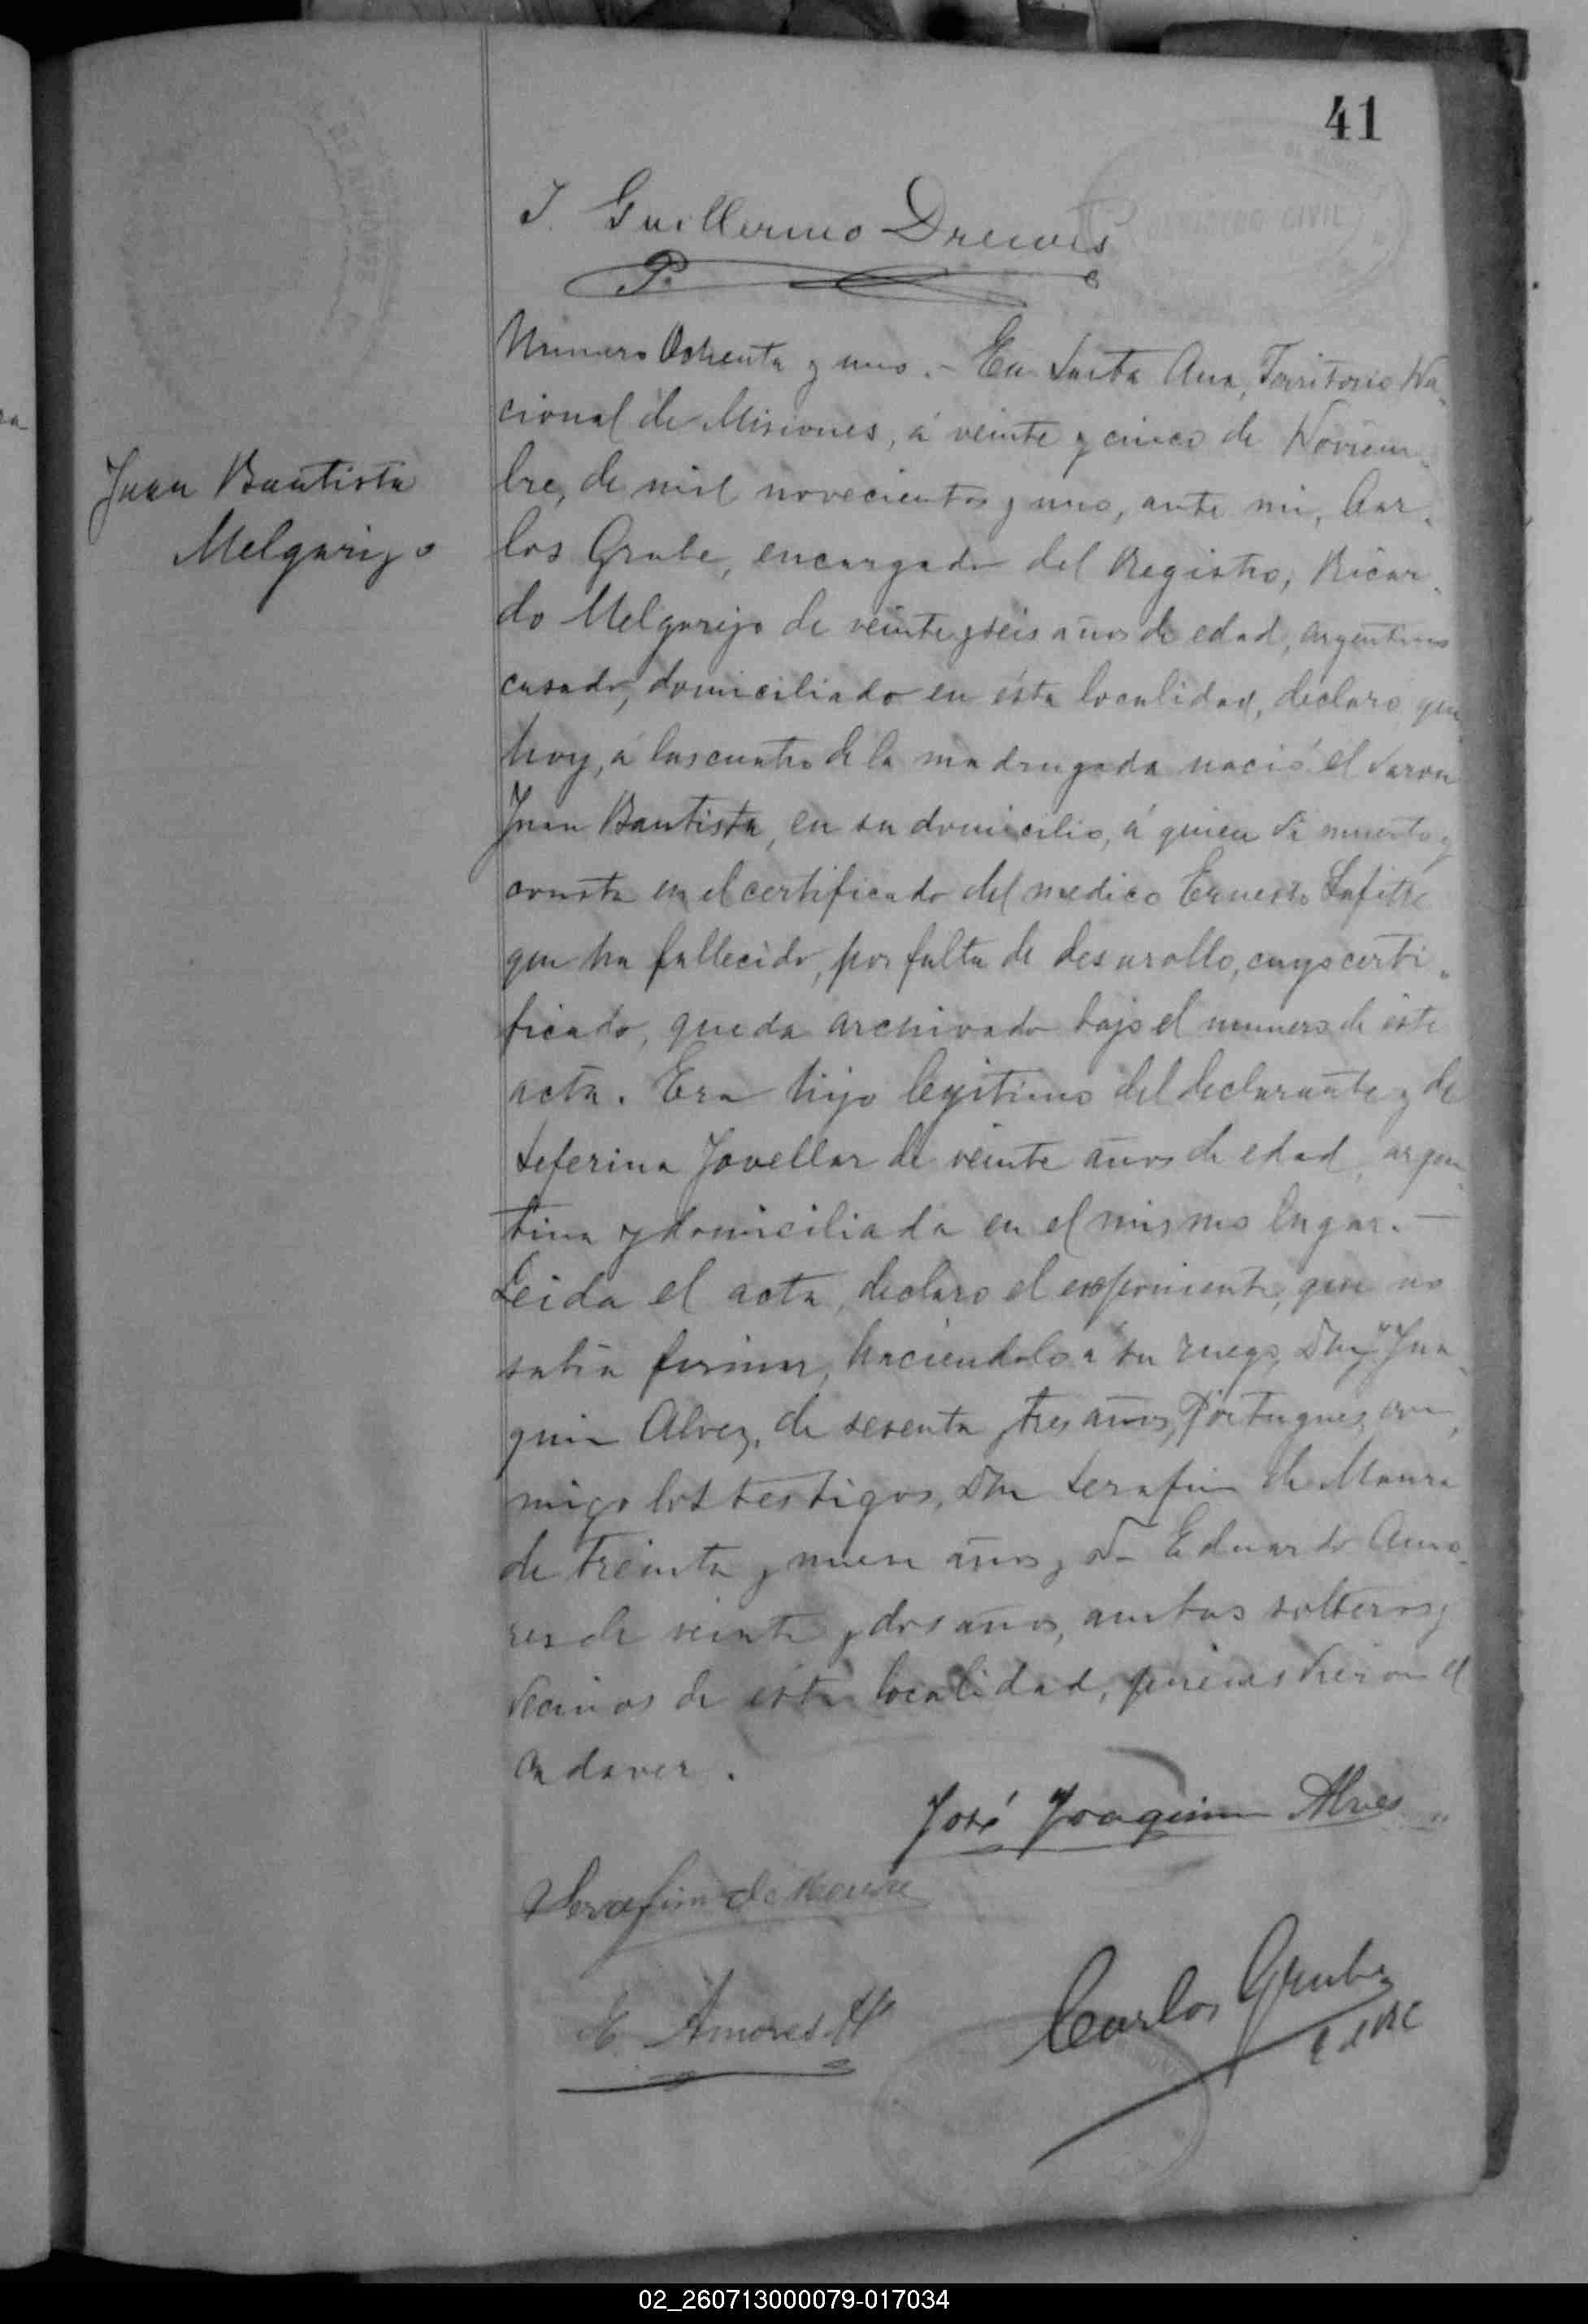 41
J. Guillermo Drewes
P.
Juan Bautista
Melgarejo
Numero Ochenta y uno. - En Santa Ana, Territorio Na-
cional de Misiones, á veinte y cinco de Noviem-
bre, de mil novecientos y uno, ante mi, Car-
los Grube, encargado del Registro, Ricar-
do Melgarejo de veinte y seis años de edad, argentino
casado, domiciliado en ésta localidad, declaro que
hoy, á las cuatro de la madrugada nació el varon
Juan Bautista, en su domicilio, á quien vi muerto y
consta en el certificado del medico Ernesto Lafitte
que ha fallecido, por falta de desarollo, cuyo certi-
ficado, queda archivado bajo el numero de este
acta. Era hijo legitimo del declarante y de
Seferina Jovellar de veinte años de edad, argen-
tina y domiciliada en el mismo lugar. —
Leida el acta, declaro el exponiente, que no
sabia firmar, haciendolo a su ruego, Don J. Joa-
quin Alvez, de sesenta y tres años, Portugues, con-
migo los testigos, Don Serafin de Moura
de treinta y nueve años y Dn Eduardo Amo-
res de veinte y dos años, ambos solteros y
vecinos de ésta localidad, quienes vieron el
cadaver.
José Joaquim Alves
Serafim de Moura
E. Amores H
Carlos Grube
E del RC
REGISTRO CIVIL
02_260713000079-017034